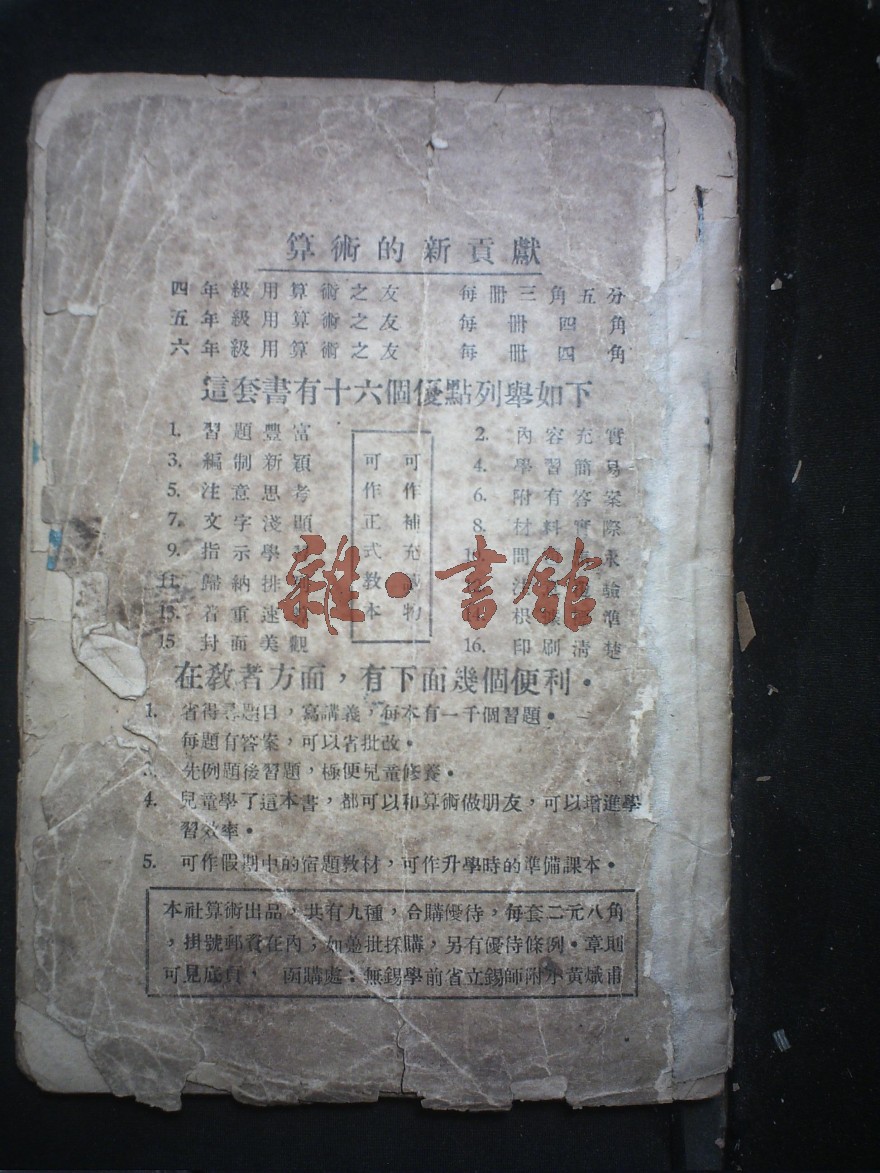 算術的新貢獻
四年級用算術之友 每冊三角五分
五年級用算術之友 每冊四角
六年級用算術之友 每冊四角
這套書有十六個優點列舉如下
1. 習題豐富 2. 內容充實
3. 編制新穎 4. 學習簡易
5. 注意思考 6. 附有答案
7. 文字淺顯 8. 材料實際
9. 指示學
11. 歸納排 驗
13. 着重速 準
15 封面美觀 16. 印刷清楚
可作補充 物
可作正式教本
雜·書館
在教者方面，有下面幾個便利。
1. 省得尋題目，寫講義，每本有一千個習題。
每題有答案，可以省批改。
3. 先例題後習題，極便兒童修養。
4. 兒童學了這本書，都可以和算術做朋友，可以增進學
習效率。
5. 可作假期中的宿題教材，可作升學時的準備課本。
本社算術出品，共有九種，合購優待，每套二元八角
，掛號郵費在內；如躉批採購，另有優待條例。章則
可見底頁， 函購處：無錫學前省立錫師附小黃熾甫